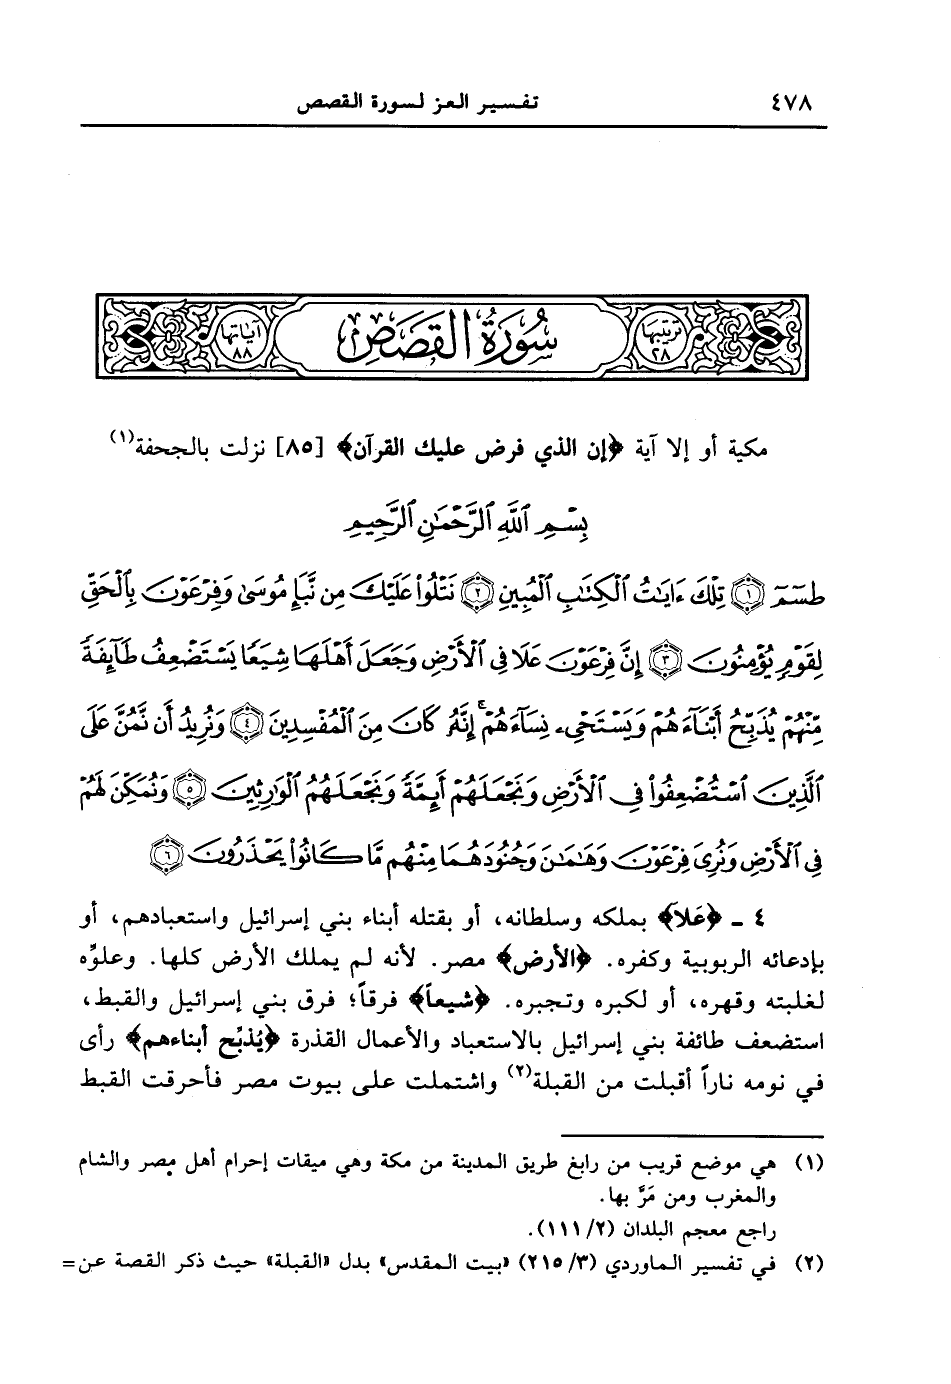 ٤٧٨ تفسير العز لسورة القصص
ترتيبها ٢٨ سُورَةُ القَصَصِ آياتها ٨٨
مكية أو إلا آية ﴿إن الذي فرض عليك القرآن﴾ [٨٥] نزلت بالجحفة(١)
بِسْمِ ٱللَّهِ ٱلرَّحْمَٰنِ ٱلرَّحِيمِ
طسٓمٓ ١ تِلْكَ ءَايَٰتُ ٱلْكِتَٰبِ ٱلْمُبِينِ ٢ نَتْلُوا۟ عَلَيْكَ مِن نَّبَإِ مُوسَىٰ وَفِرْعَوْنَ بِٱلْحَقِّ
لِقَوْمٍ يُؤْمِنُونَ ٣ إِنَّ فِرْعَوْنَ عَلَا فِى ٱلْأَرْضِ وَجَعَلَ أَهْلَهَا شِيَعًا يَسْتَضْعِفُ طَآئِفَةً
مِّنْهُمْ يُذَبِّحُ أَبْنَآءَهُمْ وَيَسْتَحْىِۦ نِسَآءَهُمْ ۚ إِنَّهُۥ كَانَ مِنَ ٱلْمُفْسِدِينَ ٤ وَنُرِيدُ أَن نَّمُنَّ عَلَى
ٱلَّذِينَ ٱسْتُضْعِفُوا۟ فِى ٱلْأَرْضِ وَنَجْعَلَهُمْ أَئِمَّةً وَنَجْعَلَهُمُ ٱلْوَٰرِثِينَ ٥ وَنُمَكِّنَ لَهُمْ
فِى ٱلْأَرْضِ وَنُرِىَ فِرْعَوْنَ وَهَٰمَٰنَ وَجُنُودَهُمَا مِنْهُم مَّا كَانُوا۟ يَحْذَرُونَ ٦
٤ - ﴿عَلاَ﴾ بملكه وسلطانه، أو بقتله أبناء بني إسرائيل واستعبادهم، أو
بإدعائه الربوبية وكفره. ﴿الأرض﴾ مصر. لأنه لم يملك الأرض كلها. وعلوِّه
لغلبته وقهره، أو لكبره وتجبره. ﴿شيعاً﴾ فرقاً؛ فرق بني إسرائيل والقبط،
استضعف طائفة بني إسرائيل بالاستعباد والأعمال القذرة ﴿يُذبِّح أبناءهم﴾ رأى
في نومه ناراً أقبلت من القبلة(٢) واشتملت على بيوت مصر فأحرقت القبط
(١) هي موضع قريب من رابغ طريق المدينة من مكة وهي ميقات إحرام أهل مصر والشام
والمغرب ومن مَرَّ بها.
راجع معجم البلدان (١١١/٢).
(٢) في تفسير الماوردي (٢١٥/٣) «بيت المقدس» بدل «القبلة» حيث ذكر القصة عن=